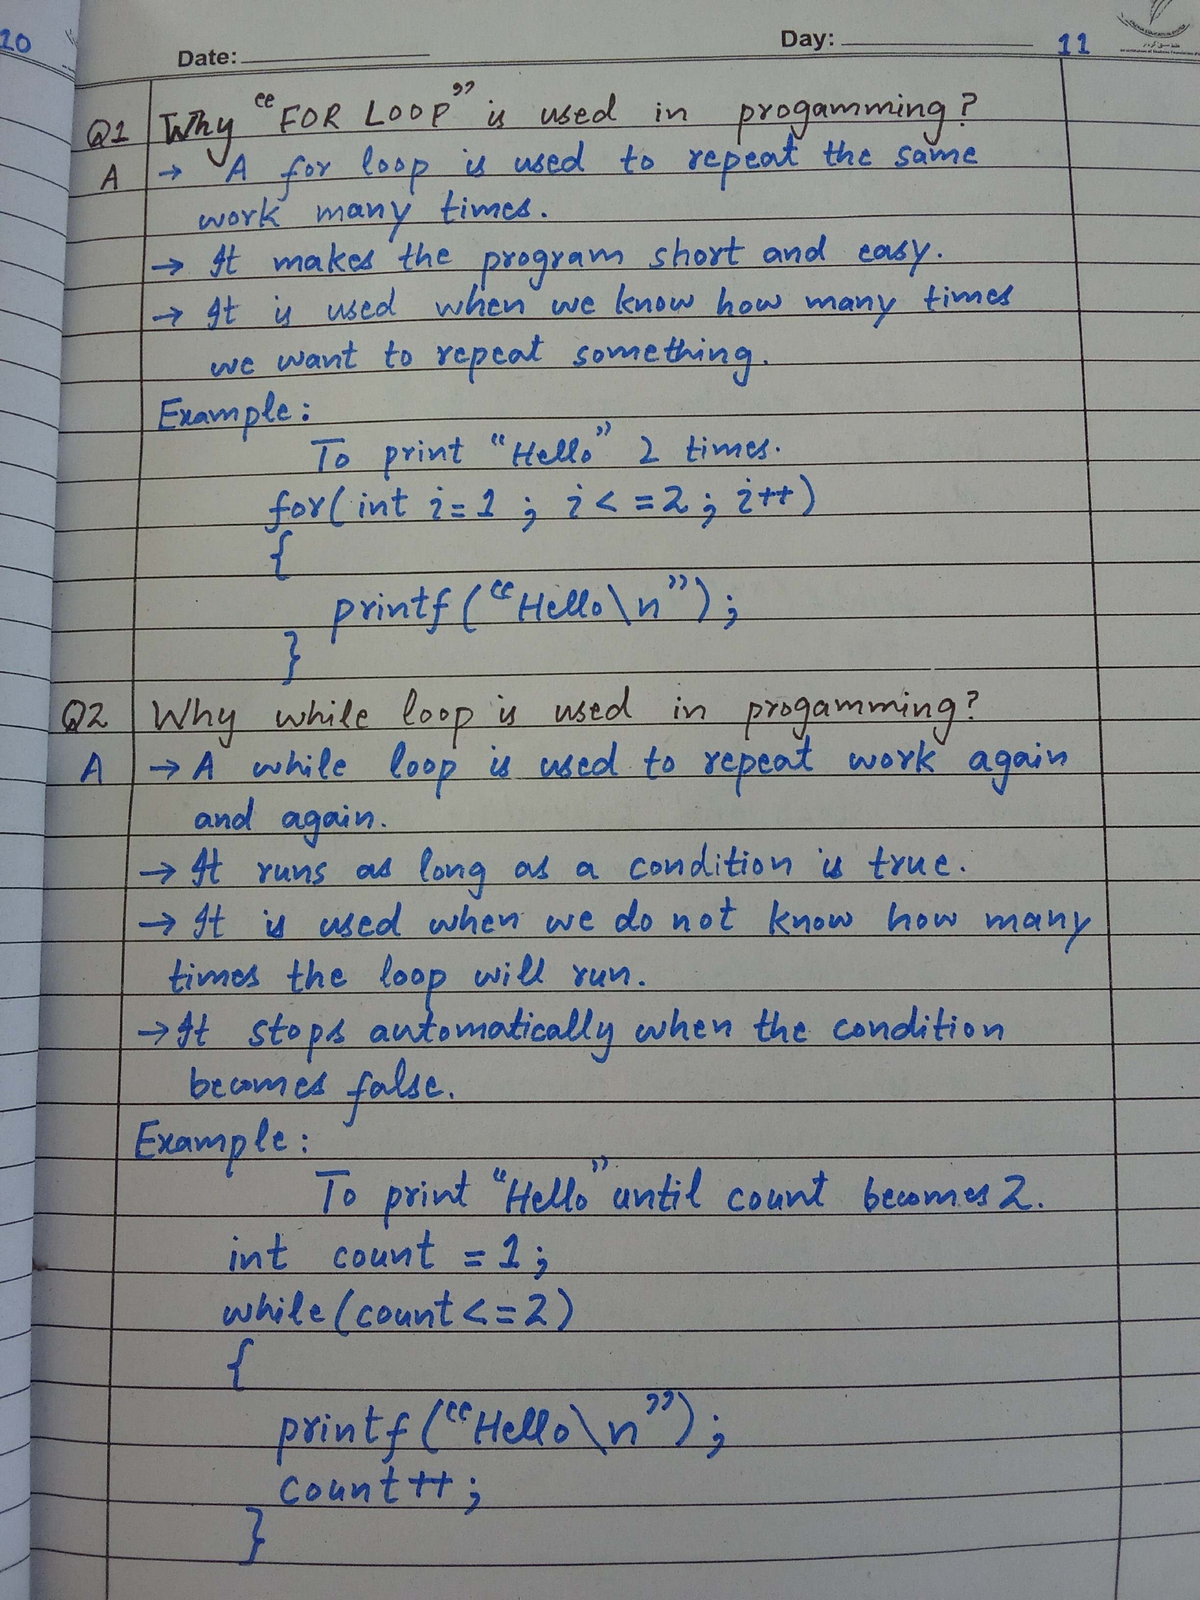 10
Date:
Day:
11
Q1 Why "FOR LOOP" is used in progamming?
A → A for loop is used to repeat the same
work many times.
→ It makes the program short and easy.
→ It is used when we know how many times
we want to repeat something.
Example:
To print "Hello" 2 times.
for(int i=1 ; i<=2; i++)
{
printf("Hello\n");
}
Q2 Why while loop is used in progamming?
A → A while loop is used to repeat work again
and again.
→ It runs as long as a condition is true.
→ It is used when we do not know how many
times the loop will run.
→ It stops automatically when the condition
becomes false.
Example:
To print "Hello" until count becomes 2.
int count = 1;
while(count<=2)
{
printf("Hello\n");
count++;
}